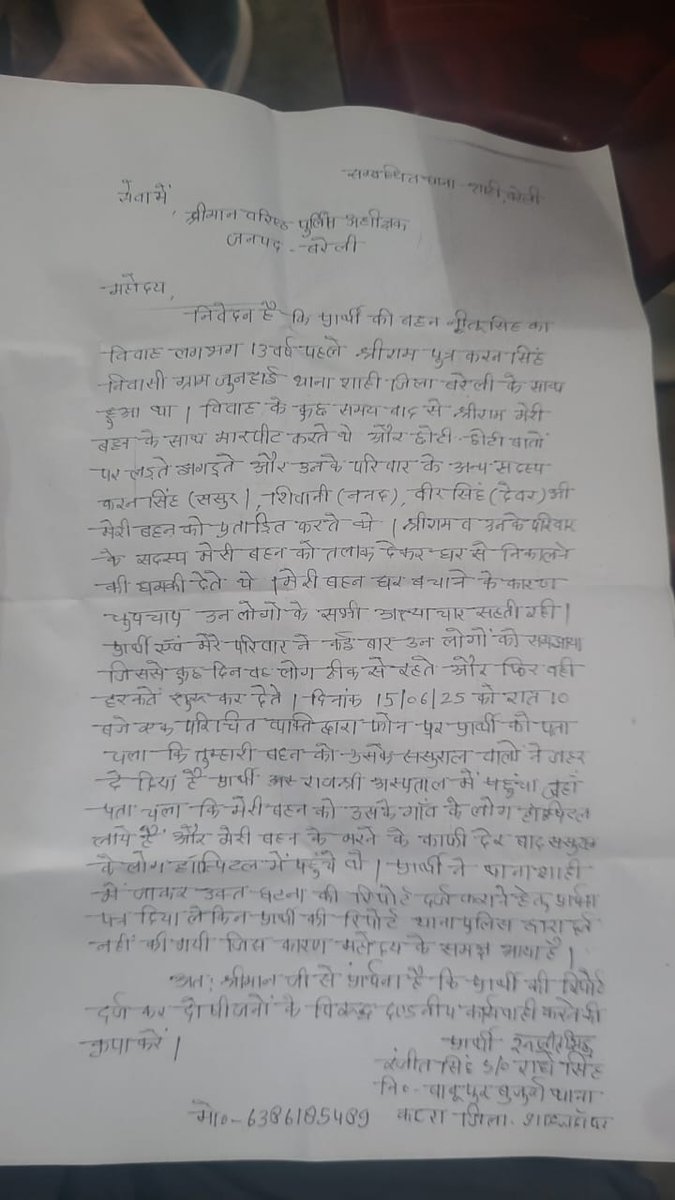 सम्बन्धित थाना - शाही, बरेली
सेवा में,
श्रीमान वरिष्ठ पुलिस अधीक्षक
जनपद - बरेली
महोदय,
निवेदन है कि प्रार्थी की बहन सिंह का
विवाह लगभग 13 वर्ष पहले श्रीराम पुत्र करन सिंह
निवासी ग्राम जुनहाई थाना शाही जिला बरेली के साथ
हुआ था । विवाह के कुछ समय बाद से श्रीराम मेरी
बहन के साथ मारपीट करते थे और छोटी-छोटी बातों
पर लड़ते झगड़ते और उनके परिवार के अन्य सदस्य
करन सिंह (ससुर), शिवानी (ननद), वीर सिंह (देवर) भी
मेरी बहन को प्रताड़ित करते थे । श्रीराम व उनके परिवार
के सदस्य मेरी बहन को तलाक देकर घर से निकालने
की धमकी देते थे । मेरी बहन घर बचाने के कारण
चुपचाप उन लोगो के सभी अत्याचार सहती रही ।
प्रार्थी एवं मेरे परिवार ने कई बार उन लोगों को समझाया
जिससे कुछ दिन वह लोग ठीक से रहते और फिर वही
हरकतें शुरू कर देते । दिनांक 15/06/25 को रात 10
बजे एक परिचित व्यक्ति द्वारा फोन पर प्रार्थी को पता
चला कि तुम्हारी बहन को उसके ससुराल वालो ने जहर
दे दिया है प्रार्थी अस्पताल में पहुंचा वहाँ
पता चला कि मेरी बहन को उसके गाँव के लोग हॉस्पिटल
लाये है और मेरी बहन के मरने के काफी देर बाद ससुराल
के लोग हॉस्पिटल में पहुंचे थे । प्रार्थी ने थाना शाही
में जाकर उक्त घटना की रिपोर्ट दर्ज कराने हेतु प्रार्थना
पत्र दिया लेकिन प्रार्थी की रिपोर्ट थाना पुलिस द्वारा दर्ज
नहीं की गयी जिस कारण महोदय के समक्ष आया है ।
अतः श्रीमान जी से प्रार्थना है कि प्रार्थी की रिपोर्ट
दर्ज कर दोषीजनों के विरूद्ध दण्डनीय कार्यवाही करने की
कृपा करें ।
प्रार्थी
रंजीत सिंह S/O राधे सिंह
नि०- बाबूपुर बुजुर्ग थाना
मो०- 6386185489 कटरा जिला-